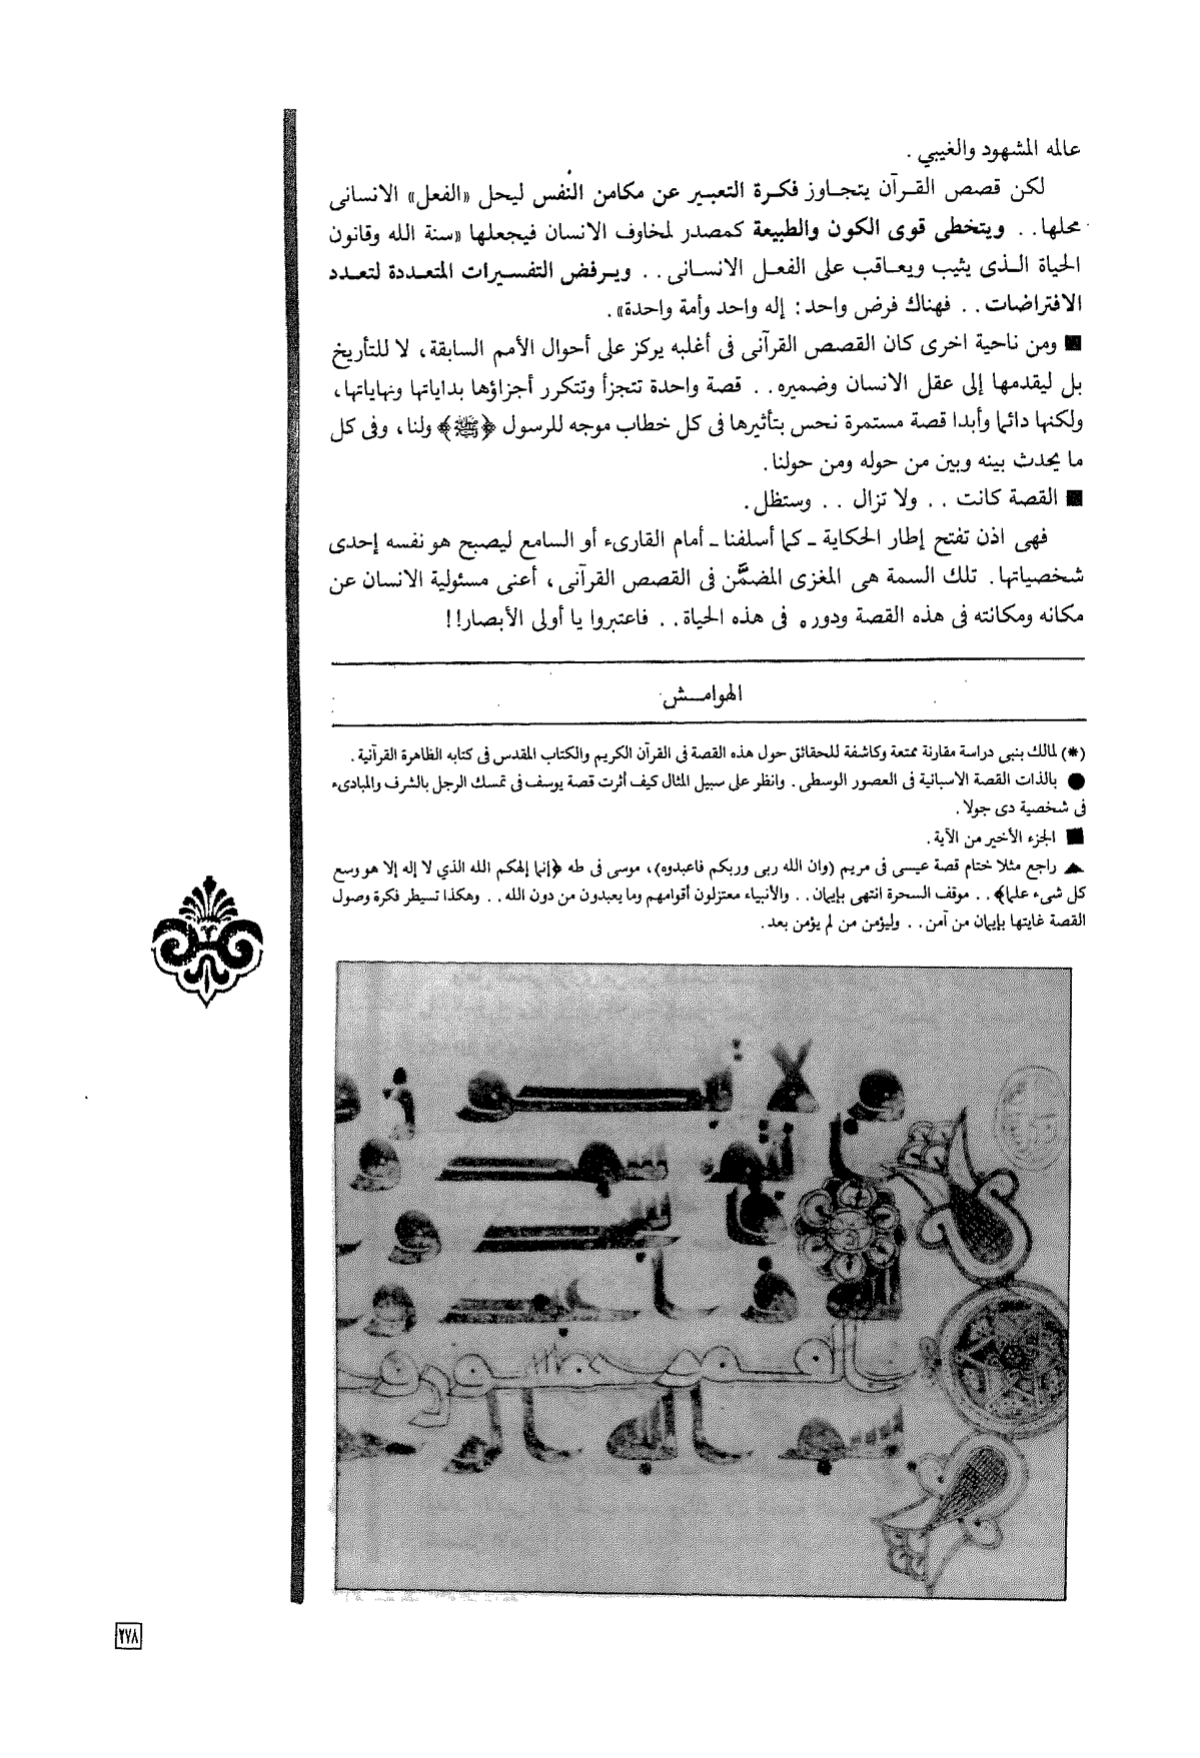 عالمه المشهود والغيبي .
لكن قصص القرآن يتجاوز فكرة التعبير عن مكامن النفس ليحل «الفعل» الانسانى
محلها . . ويتخطى قوى الكون والطبيعة كمصدر لمخاوف الانسان فيجعلها «سنة الله وقانون
الحياة الذى يثيب ويعاقب على الفعل الانسانى . . ويرفض التفسيرات المتعددة لتعدد
الافتراضات . . فهناك فرض واحد : إله واحد وأمة واحدة» .
■ ومن ناحية اخرى كان القصص القرآنى فى أغلبه يركز على أحوال الأمم السابقة، لا للتأريخ
بل ليقدمها إلى عقل الانسان وضميره . . قصة واحدة تتجزأ وتتكرر أجزاؤها بداياتها ونهاياتها،
ولكنها دائما وأبدا قصة مستمرة نحس بتأثيرها فى كل خطاب موجه للرسول ﴿ﷺ﴾ ولنا، وفى كل
ما يحدث بينه وبين من حوله ومن حولنا .
■ القصة كانت . . ولا تزال . . وستظل .
فهى اذن تفتح إطار الحكاية ـ كما أسلفنا ـ أمام القارىء أو السامع ليصبح هو نفسه إحدى
شخصياتها . تلك السمة هى المغزى المضمَّن فى القصص القرآنى، أعنى مسئولية الانسان عن
مكانه ومكانته فى هذه القصة ودوره فى هذه الحياة . . فاعتبروا يا أولى الأبصار!!
الهوامــش
(*) لمالك بنبى دراسة مقارنة ممتعة وكاشفة للحقائق حول هذه القصة فى القرآن الكريم والكتاب المقدس فى كتابه الظاهرة القرآنية .
● بالذات القصة الاسبانية فى العصور الوسطى . وانظر على سبيل المثال كيف أثرت قصة يوسف فى تمسك الرجل بالشرف والمبادىء
فى شخصية دى جولا .
■ الجزء الأخير من الآية .
▲ راجع مثلا ختام قصة عيسى فى مريم (وان الله ربى وربكم فاعبدوه)، موسى فى طه ﴿إنما إلهكم الله الذي لا إله إلا هو وسع
كل شىء علما﴾ . . موقف السحرة انتهى بإيمان . . والأنبياء معتزلون أقوامهم وما يعبدون من دون الله . . وهكذا تسيطر فكرة وصول
القصة غايتها بإيمان من آمن . . وليؤمن من لم يؤمن بعد .
٢٧٨